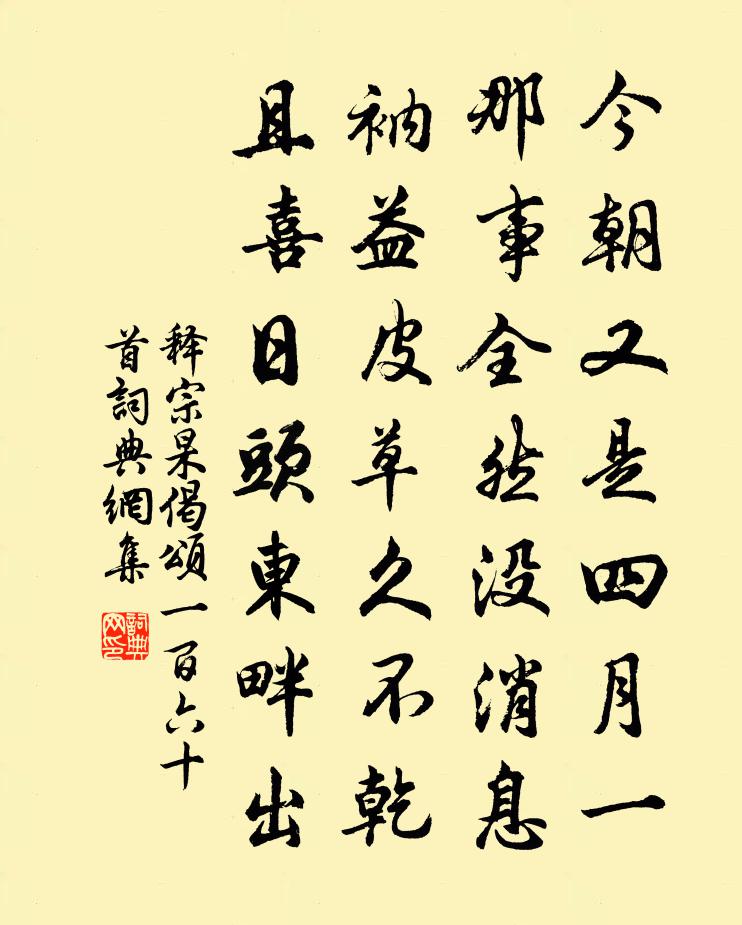 今朝又是四月一
那事全然没消息
衲益皮草久不乾
且喜日頭東畔出
释宗杲偈頌一百六十
首詞典網集
詞典网印